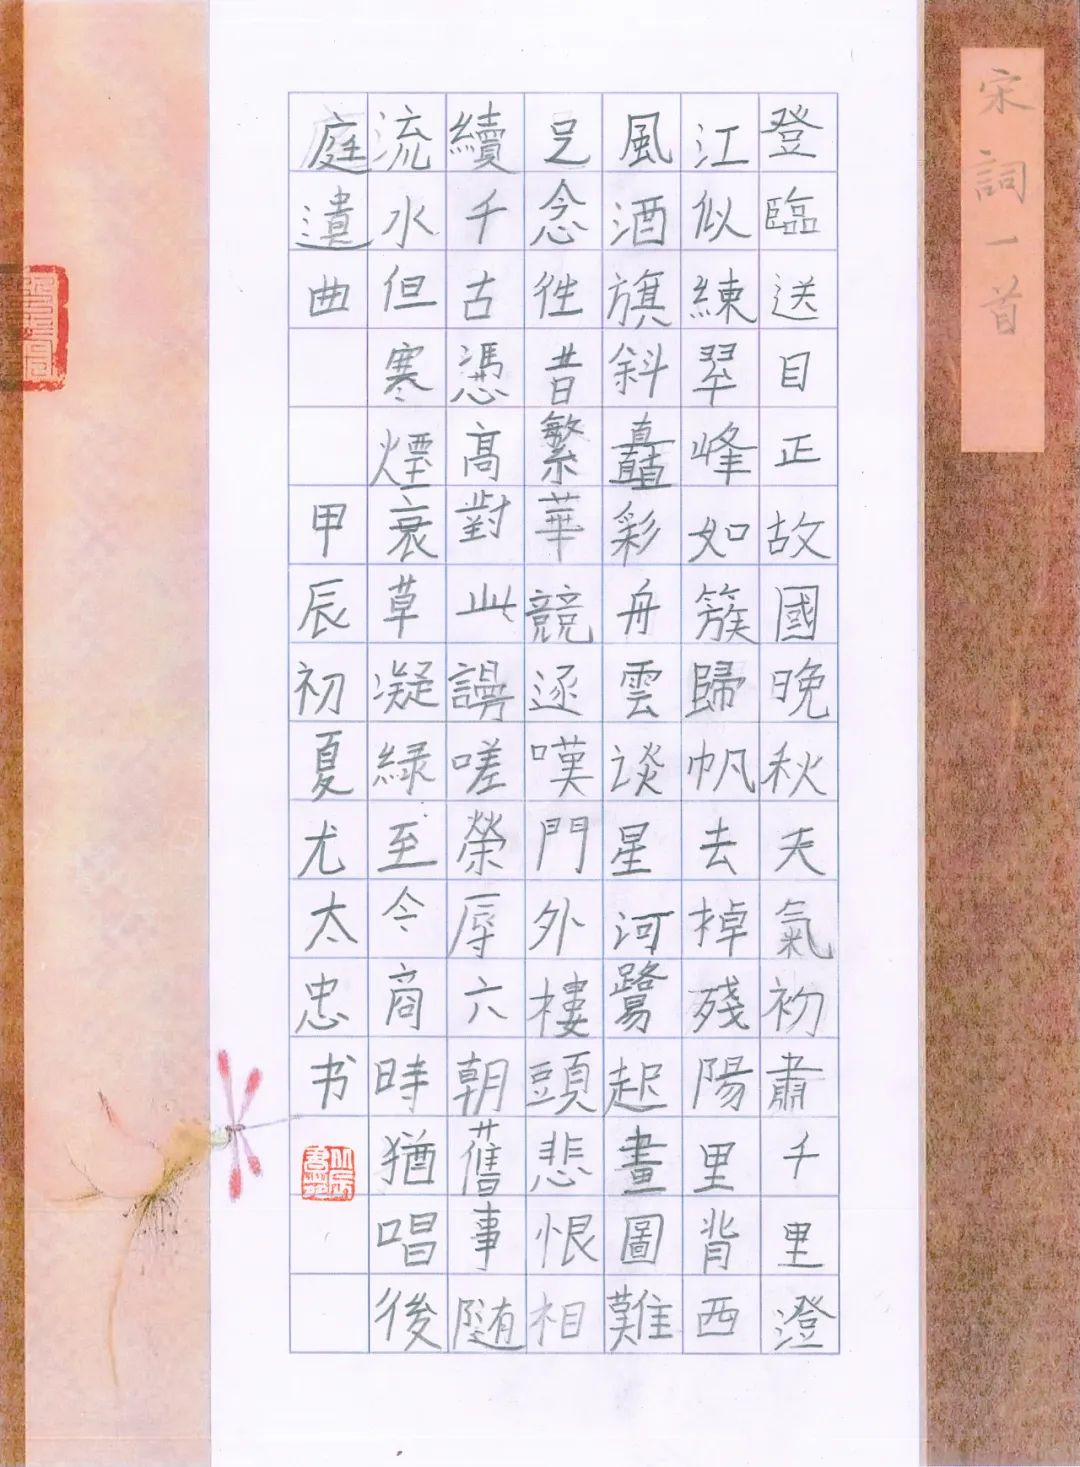 宋詞一首
登臨送目正故國晚秋天氣初肅千里澄
江似練翠峰如簇歸帆去棹殘陽里背西
風酒旗斜矗彩舟雲淡星河鷺起畫圖難
足念往昔繁華競逐嘆門外樓頭悲恨相
續千古憑高對此謾嗟榮辱六朝舊事随
流水但寒煙衰草凝緑至今商時猶唱後
庭遺曲 甲辰初夏尤太忠书